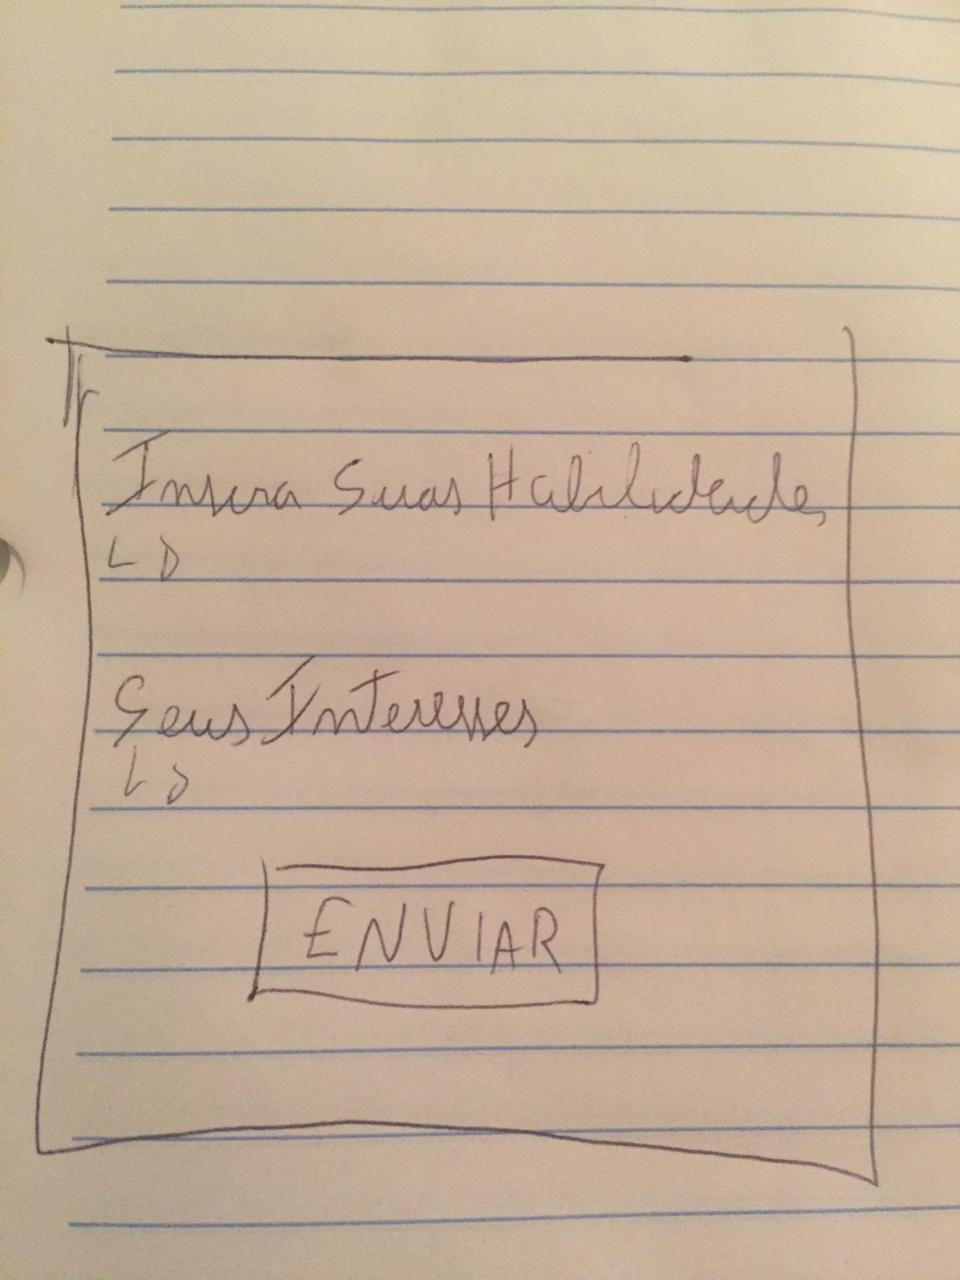 Insira Suas Habilidades
Seus Interesses
ENVIAR